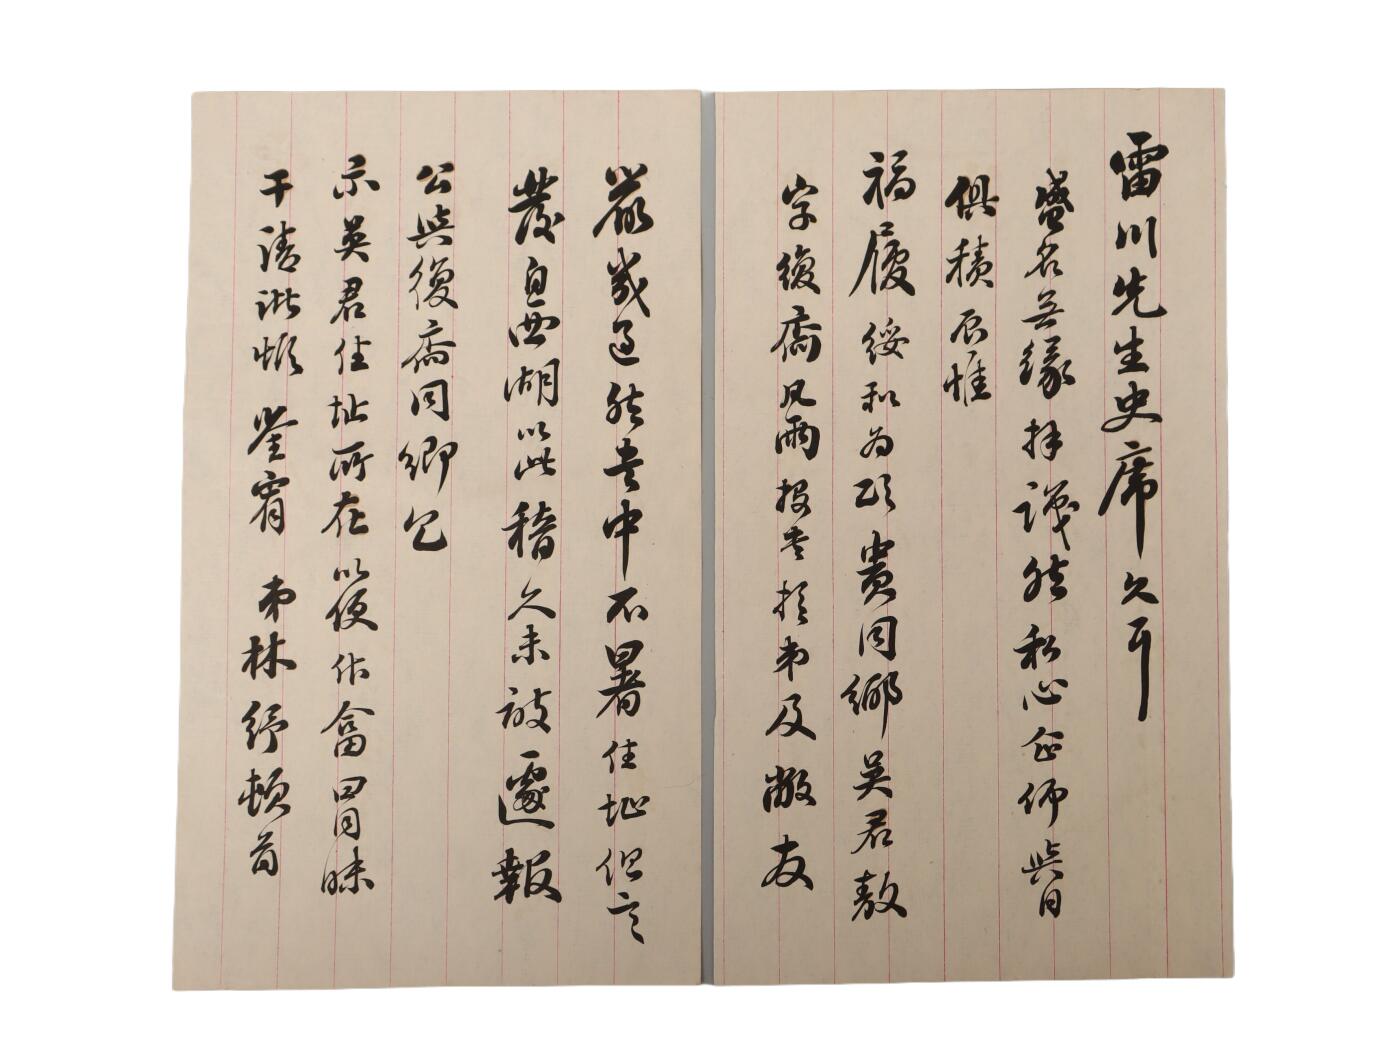 雷川先生史席久耳
盛名無緣拜識然私心企仰與日
俱積辰惟
福履綏和為頌貴同鄉吳君敖
字復齋凡兩投書於弟及敝友
嚴幾道然書中不署住址但言
發自西湖以此稽久未敢遽報
公與復齋同鄉乞
示吳君住址所在以便作畣冒昧
干瀆諸惟鑒宥弟林紓頓首